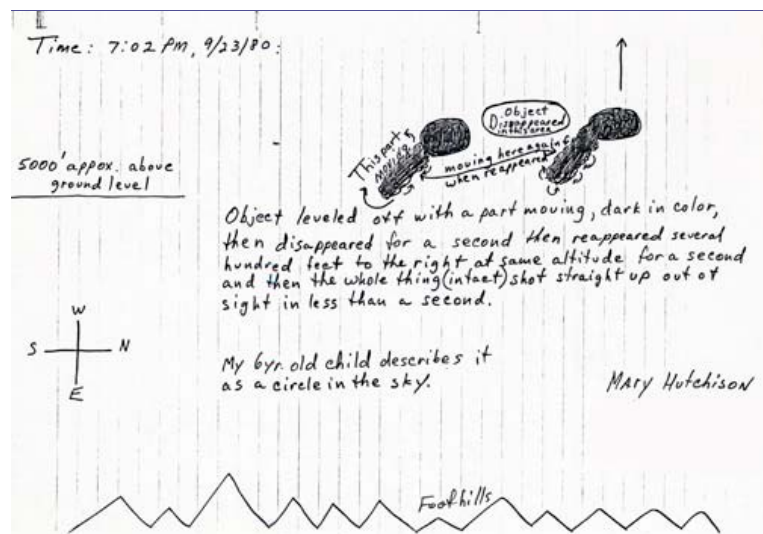 Time: 7:02 PM, 9/23/80:
Object
Disappeared
in this area
This part
moving
moving here again
when reappeared
5000' appox. above
ground level
Object leveled off with a part moving, dark in color,
then disappeared for a second then reappeared several
hundred feet to the right at same altitude for a second
and then the whole thing (intact) shot straight up out of
sight in less than a second.
W
S N
E
My 6yr. old child describes it
as a circle in the sky.
Mary Hutchison
Foothills